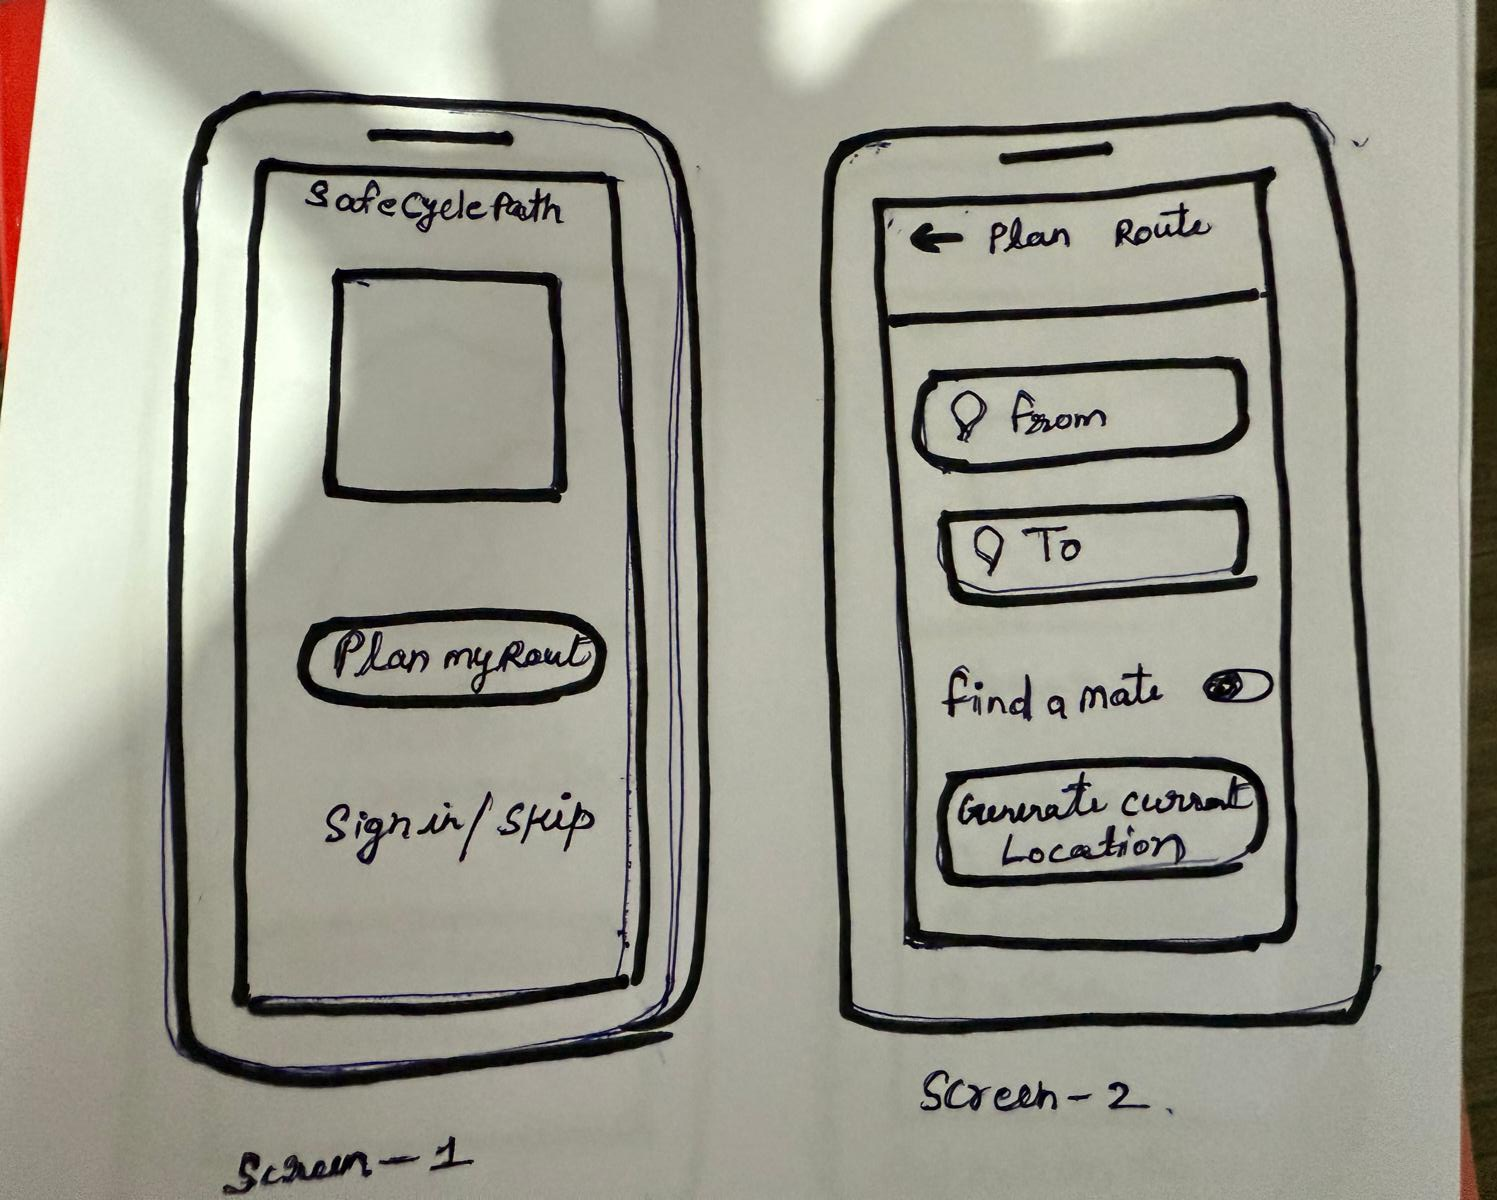 SafeCyclePath
Plan my Rout
Sign in / Skip
Screen - 1
← Plan Route
From
To
find a mate
Generate current
Location
Screen - 2.